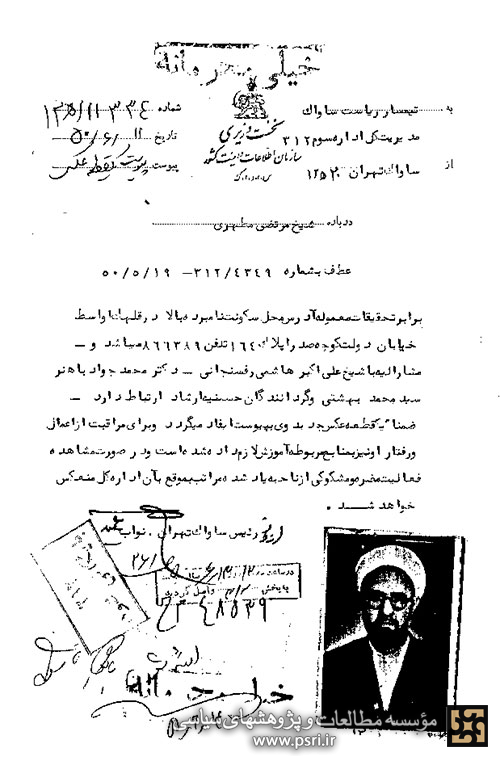 خیلی محرمانه
به تیمسار ریاست ساواک
مدیریت کل اداره سوم ۳۱۲
از ساواک تهران ۲۰ ه ۱۲
نخست وزیری
سازمان اطلاعات و امنیت کشور
س.ا.و.ا.ک
شماره ۱۲۵/۱۱۳۳۴
تاریخ ۵۰/۶/۱۱
پیوست یکقطعه عکس
درباره شیخ مرتضی مطهری
عطف بشماره ۳۱۲/۴۳۴۹ – ۵۰/۵/۱۹
برابر تحقیقات معموله آدرس محل سکونت نامبرده بالا در قلهک اواسط
خیابان دولت کوچه صدرا پلاک ۱۶۴ تلفن ۸۶۶۳۸۹ میباشد و –
مشارالیه با شیخ علی اکبر هاشمی رفسنجانی – دکتر محمد جواد باهنر
سید محمد بهشتی و گردانندگان حسینیه ارشاد ارتباط دارد –
ضمنا" یکقطعه عکس جدید وی به پیوست ایفاد میگردد و برای مراقبت از اعمال
و رفتار او نیز بمنابع مربوطه آموزش لازم داده شده است و در صورت مشاهده
فعالیت مضره و مشکوکی از ناحیه یاد شده مراتب بموقع بآن اداره کل منعکس
خواهد شد .
رئیس ساواک تهران . نواب
خیلی محرمانه
مؤسسه مطالعات و پژوهشهای سیاسی
www.psri.ir